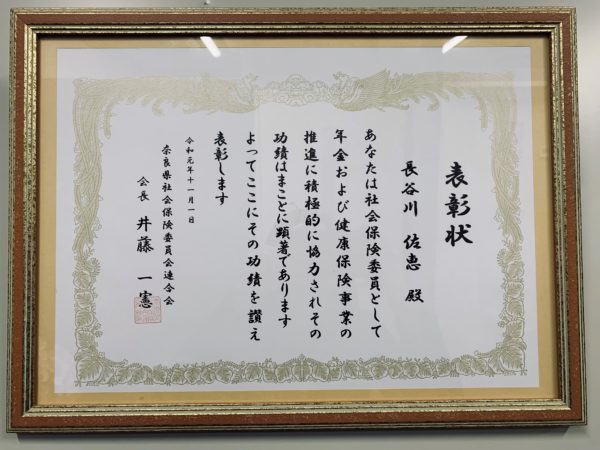 表彰状
長谷川 佐恵 殿
あなたは社会保険委員として
年金および健康保険事業の
推進に積極的に協力されその
功績はまことに顕著であります
よってここにその功績を讃え
表彰します
令和元年十一月一日
奈良県社会保険委員会連合会
会長 井藤 一憲